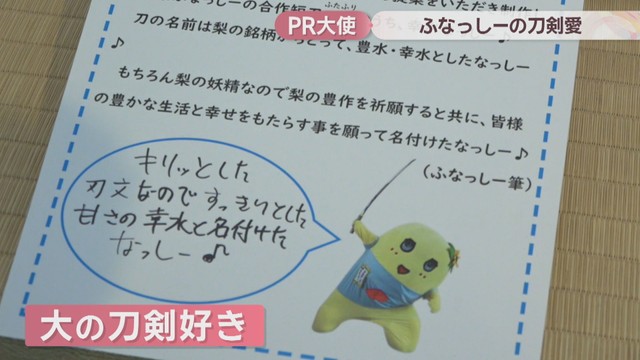 PR大使
ふなっしーの刀剣愛
なっしーの合作短刀ふたふり
刀の名前は梨の銘柄からとって、豊水・幸水としたなっしー
♪
もちろん梨の妖精なので梨の豊作を祈願すると共に、皆様
の豊かな生活と幸せをもたらす事を願って名付けたなっしー♪
(ふなっしー筆)
キリッとした
刃文なのですっきりとした
甘さの幸水と名付けた
なっしー♪
大の刀剣好き